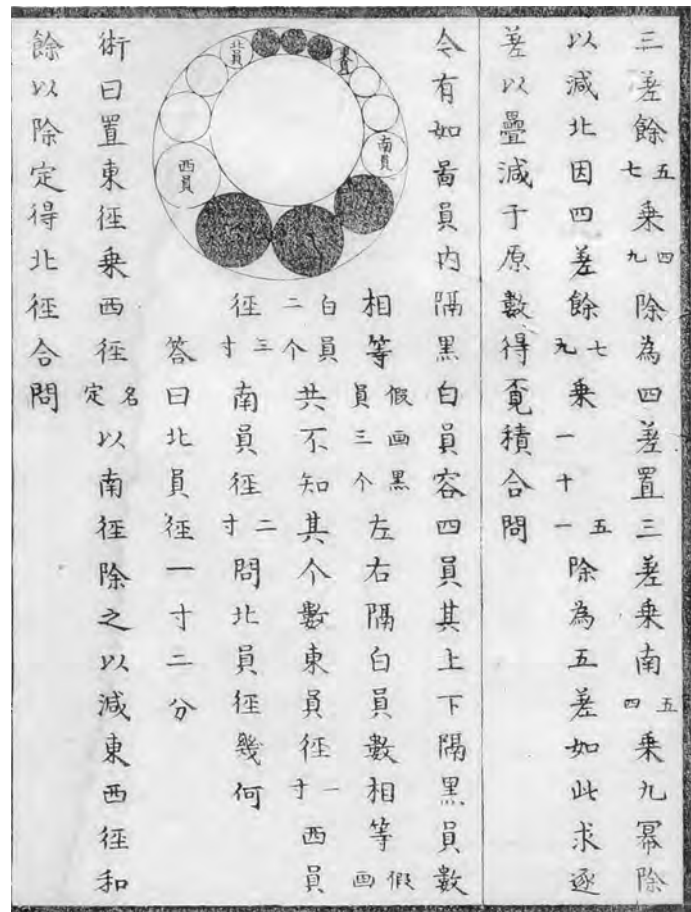 三差餘五七乘四九除為四差置三差乘南五四乘九冪除
以減北因四差餘七九乘一十五一除為五差如此求逐
差以疊減于原數得覔積合問
令有如啚員内隔黒白員容四員其上下隔黒員數
相等假画黒員三个左右隔白員數相等假画
白員二个共不知其个數東員徑一寸西員
徑三寸南員徑二寸問北員徑幾何
答曰北員徑一寸二分
東員
南員
北員
西員
術曰置東徑乘西徑名定以南徑除之以減東西徑和
餘以除定得北徑合問